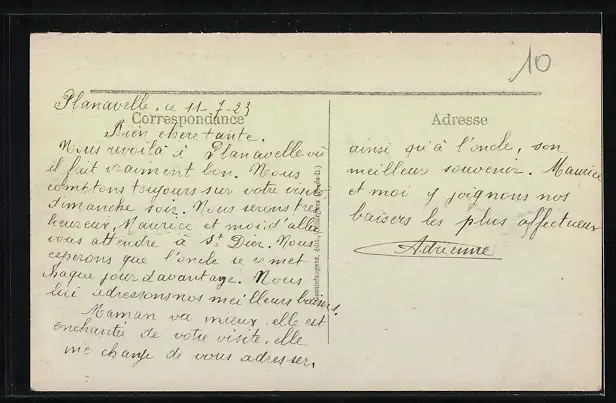 10
Planavelle, ce 11-7-23
Correspondance
Bien chère tante,
Nous revoilà à Planavelle où
il fait vraiment bon. Nous
comptons toujours sur votre visite
dimanche soir. Nous serons très
heureux, Maurice et moi d'aller
vous attendre à St Dier. Nous
esperons que l'oncle se remet
chaque jour davantage. Nous
lui adressons nos meilleurs baisers.
Maman va mieux, elle est
enchantée de votre visite, elle
me charge de vous adresser,
Adresse
ainsi qu'à l'oncle, son
meilleur souvenir. Maurice
et moi y joignons nos
baisers les plus affectueux
Adrienne